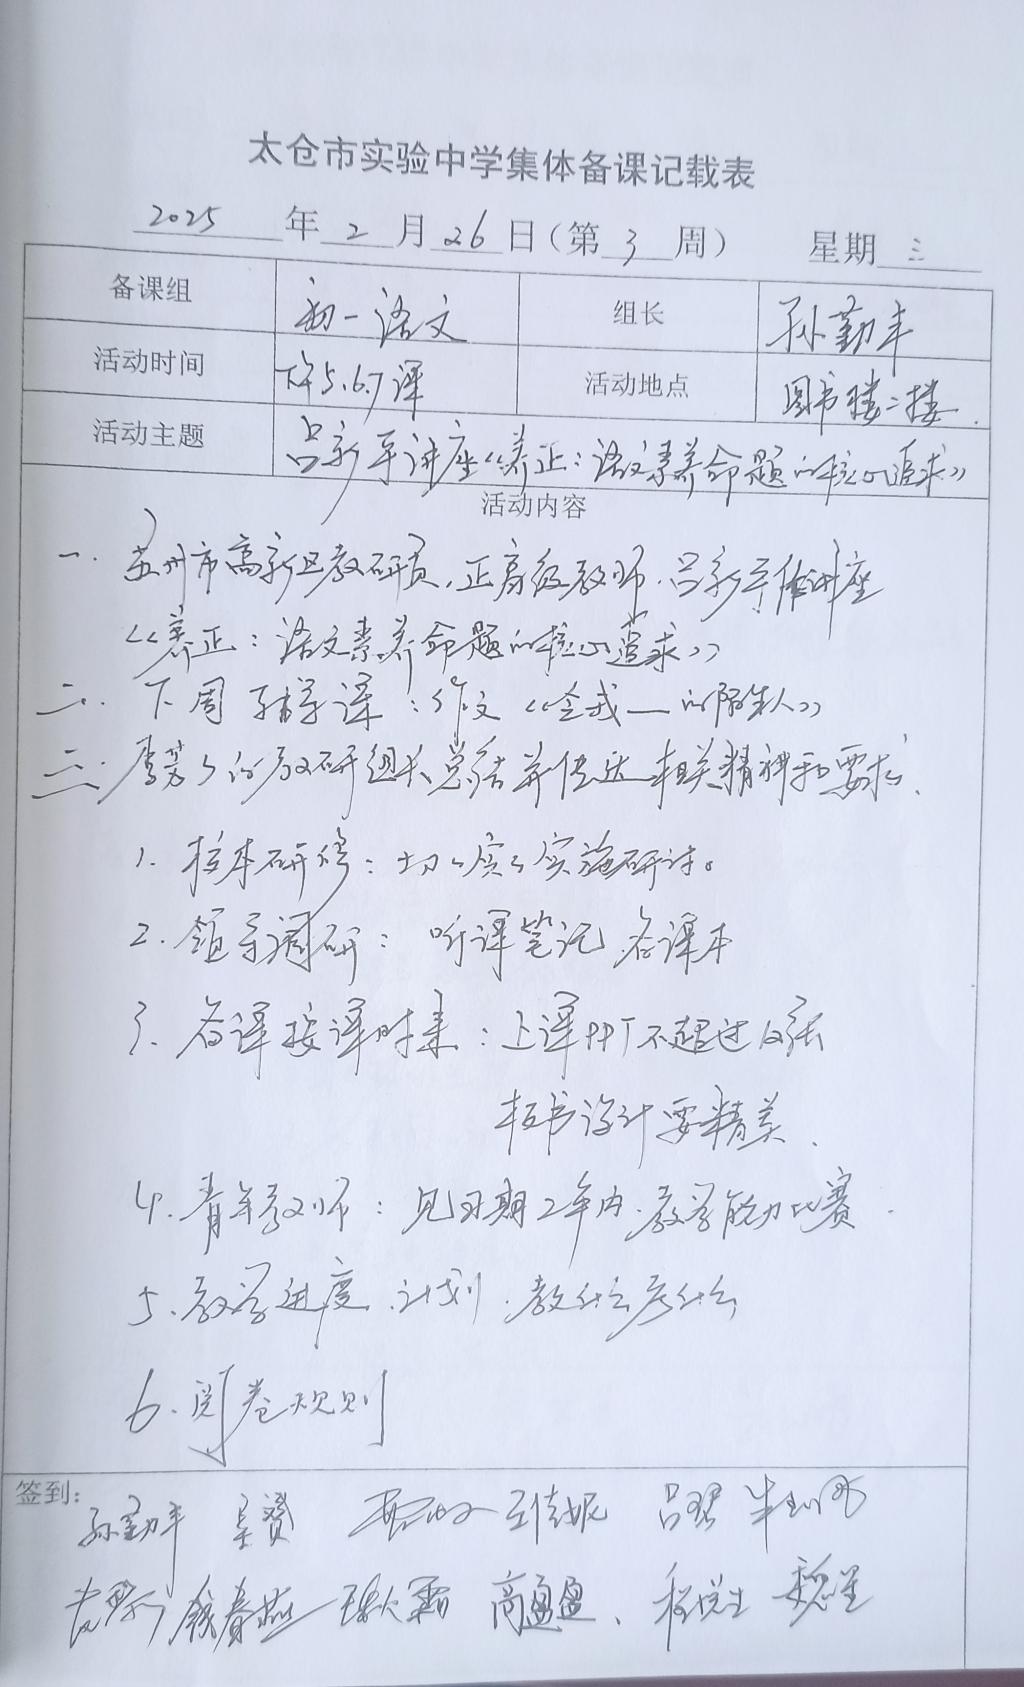 太仓市实验中学集体备课记载表
2025年2月26日(第3周) 星期三
备课组 初一语文 组长 孙勤丰
活动时间 下午5.6.7课 活动地点 图书楼二楼.
活动主题 吕新平讲座《养正:语文素养命题的核心追求》
活动内容
一. 苏州市高新区教研员.正高级教师.吕新平作讲座
《养正:语文素养命题的核心追求》
二. 下周 导学课:作文《全成 的陌生人》
三. 教研组长总结并传达相关精神和要求.
1. 校本研修:切切实实实施研讨。
2. 领导调研: 听课笔记 备课本
3. 备课按课时来:上课PPT不超过 张
板书设计要精美.
4. 青年教师:见习期2年内.教学能力比赛.
5. 教学进度.计划.教什么考什么
6. 阅卷规则
签到: 孙勤丰 吴赟 王佳妮 吕珺
钱春燕 高盈盈、 程悦 魏星